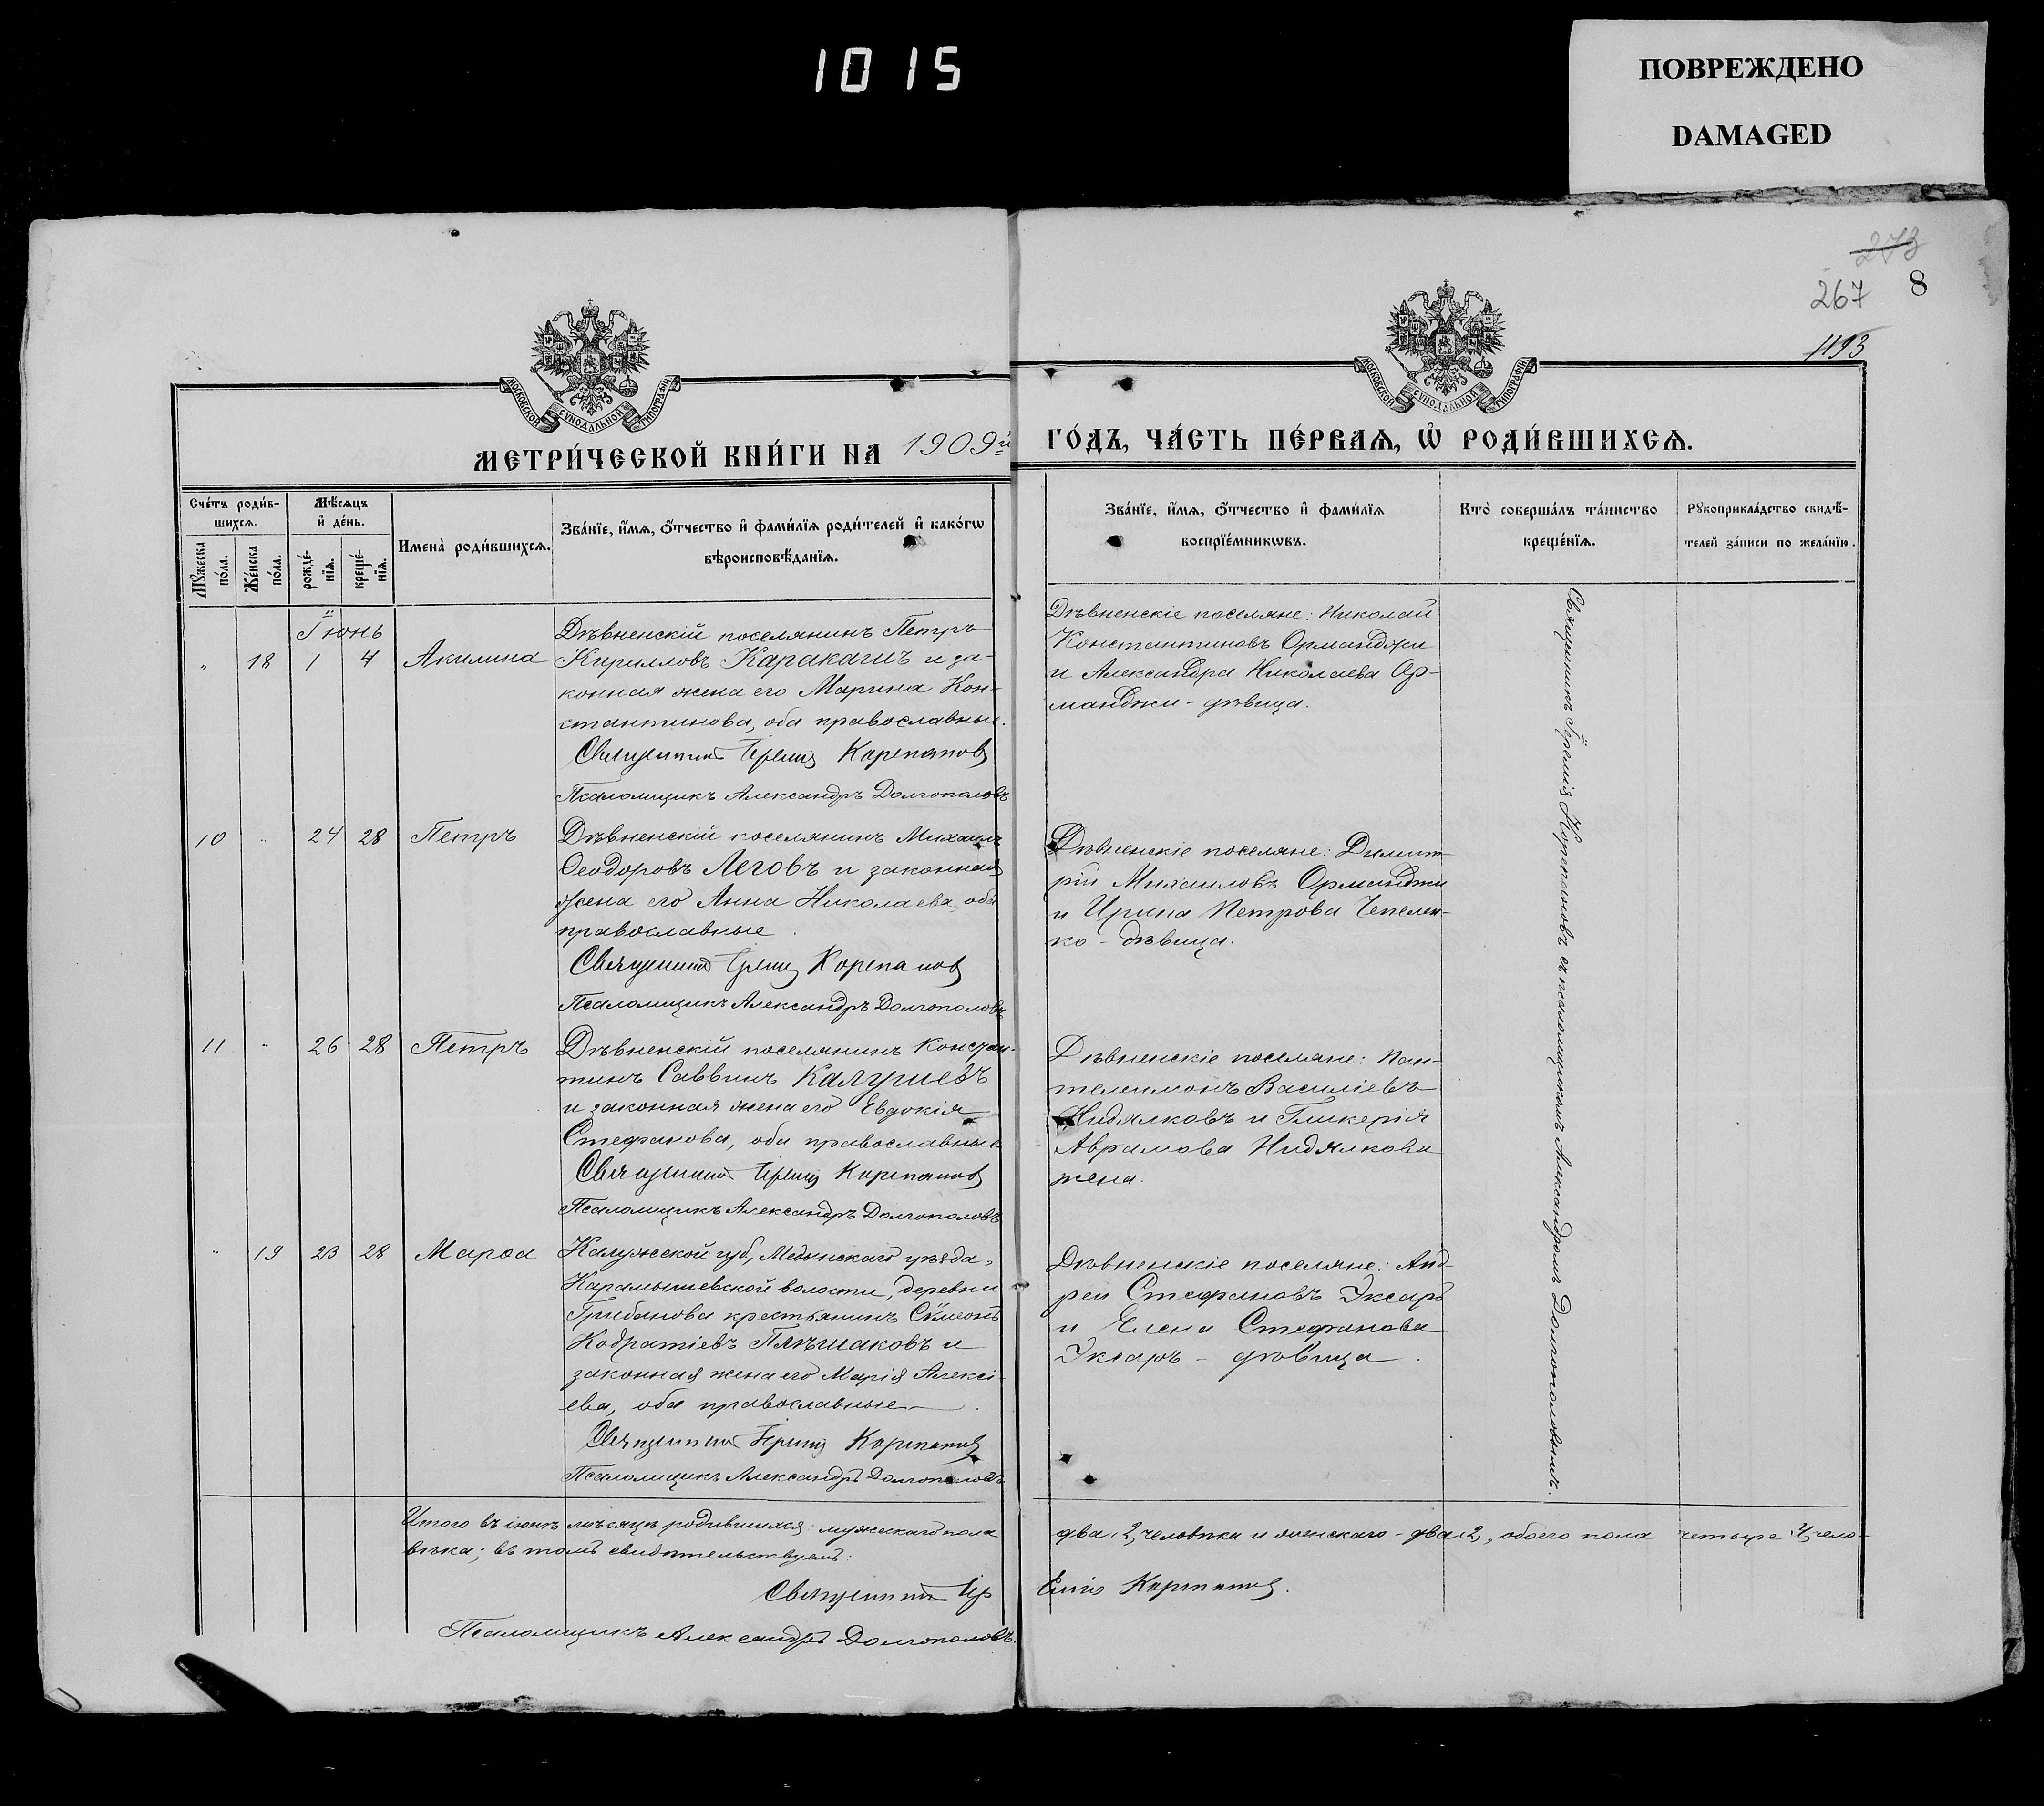 1015
ПОВРЕЖДЕНО
DAMAGED
273
267 8
1193
МОСКОВСКОЙ СѴНОДАЛЬНОЙ ТИПОГРАФІИ
МОСКОВСКОЙ СѴНОДАЛЬНОЙ ТИПОГРАФІИ
МЕТРИ́ЧЕСКОЙ КНИ́ГИ НА 1909й ГО́ДЪ, ЧА́СТЬ ПЕ́РВАѦ, Ѽ РОДИ́ВШИХСѦ.
Сче́тъ роди́в-
шихсѧ.
Мꙋжеска по́ла.
Же́нска по́ла.
Мѣ́сѧцъ
и҆ де́нь.
рожде́-
нїѧ.
креще́-
нїѧ.
Имена̀ роди́вшихсѧ.
Зва́нїе, и҆́мѧ, ѻ҆́тчество и҆ фами́лїѧ роди́телей и҆ како́гѡ
вѣроисповѣ́данїѧ.
Зва́нїе, и҆́мѧ, ѻ҆́тчество и҆ фами́лїѧ
воспрїе́мникѡвъ.
Кто̀ соверша́лъ та́инство
креще́нїѧ.
Рꙋкоприкла́дство свидѣ́-
телей за́писи по жела́нїю.
Іюнь
" 18 1 4 Акилина
Дѣвненскій поселянинъ Петръ
Кирилловъ Каракашъ и за-
конная жена его Марина Кон-
стантинова, оба православные.
Священникъ Іеремія Карпановъ
Псаломщикъ Александръ Долгополовъ
Дѣвненскіе поселяне: Николай
Константиновъ Орманджи
и Александра Николаева Ор-
манджи - дѣвица.
10 " 24 28 Петръ
Дѣвненскій поселянинъ Михаилъ
Ѳеодоровъ Леговъ и законная
жена его Анна Николаева, оба
православные.
Священникъ Іеремія Карпановъ
Псаломщикъ Александръ Долгополовъ
Дѣвненскіе поселяне: Димит-
рій Михаиловъ Орманджи
и Ирина Петрова Чепелен-
ко - дѣвица.
11 " 26 28 Петръ
Дѣвненскій поселянинъ Констан-
тинъ Саввинъ Калушевъ
и законная жена его Евдокія
Стефанова, оба православные.
Священникъ Іеремія Карпановъ
Псаломщикъ Александръ Долгополовъ
Дѣвненскіе поселяне: Пан-
телеимонъ Василіевъ
Нидялковъ и Гликерія
Аврамова Нидялкова
жена.
" 19 23 28 Марѳа
Калужской губ, Медынскаго уѣзда,
Карамышевской волости, деревни
Грибанова крестьянинъ Сѵмеонъ
Кодратіевъ Плѣшаковъ и
законная жена его Марія Алексі-
ева, оба православные.
Священникъ Іеремія Карпановъ
Псаломщикъ Александръ Долгополовъ
Дѣвненскіе поселяне: Анд-
рей Стефановъ Эксаръ
и Елена Стефанова
Эксаръ - дѣвица.
Священникъ Іеремія Карпановъ съ псаломщикомъ Александромъ Долгополовымъ.
Итого въ іюнѣ мѣсяцѣ родившихся: мужскаго пола два, 2, человѣка и женскаго - два, 2, обоего пола четыре, 4, чело-
вѣка; въ томъ свидѣтельствуемъ:
Священникъ Іеремія Карпановъ.
Псаломщикъ Александръ Долгополовъ.